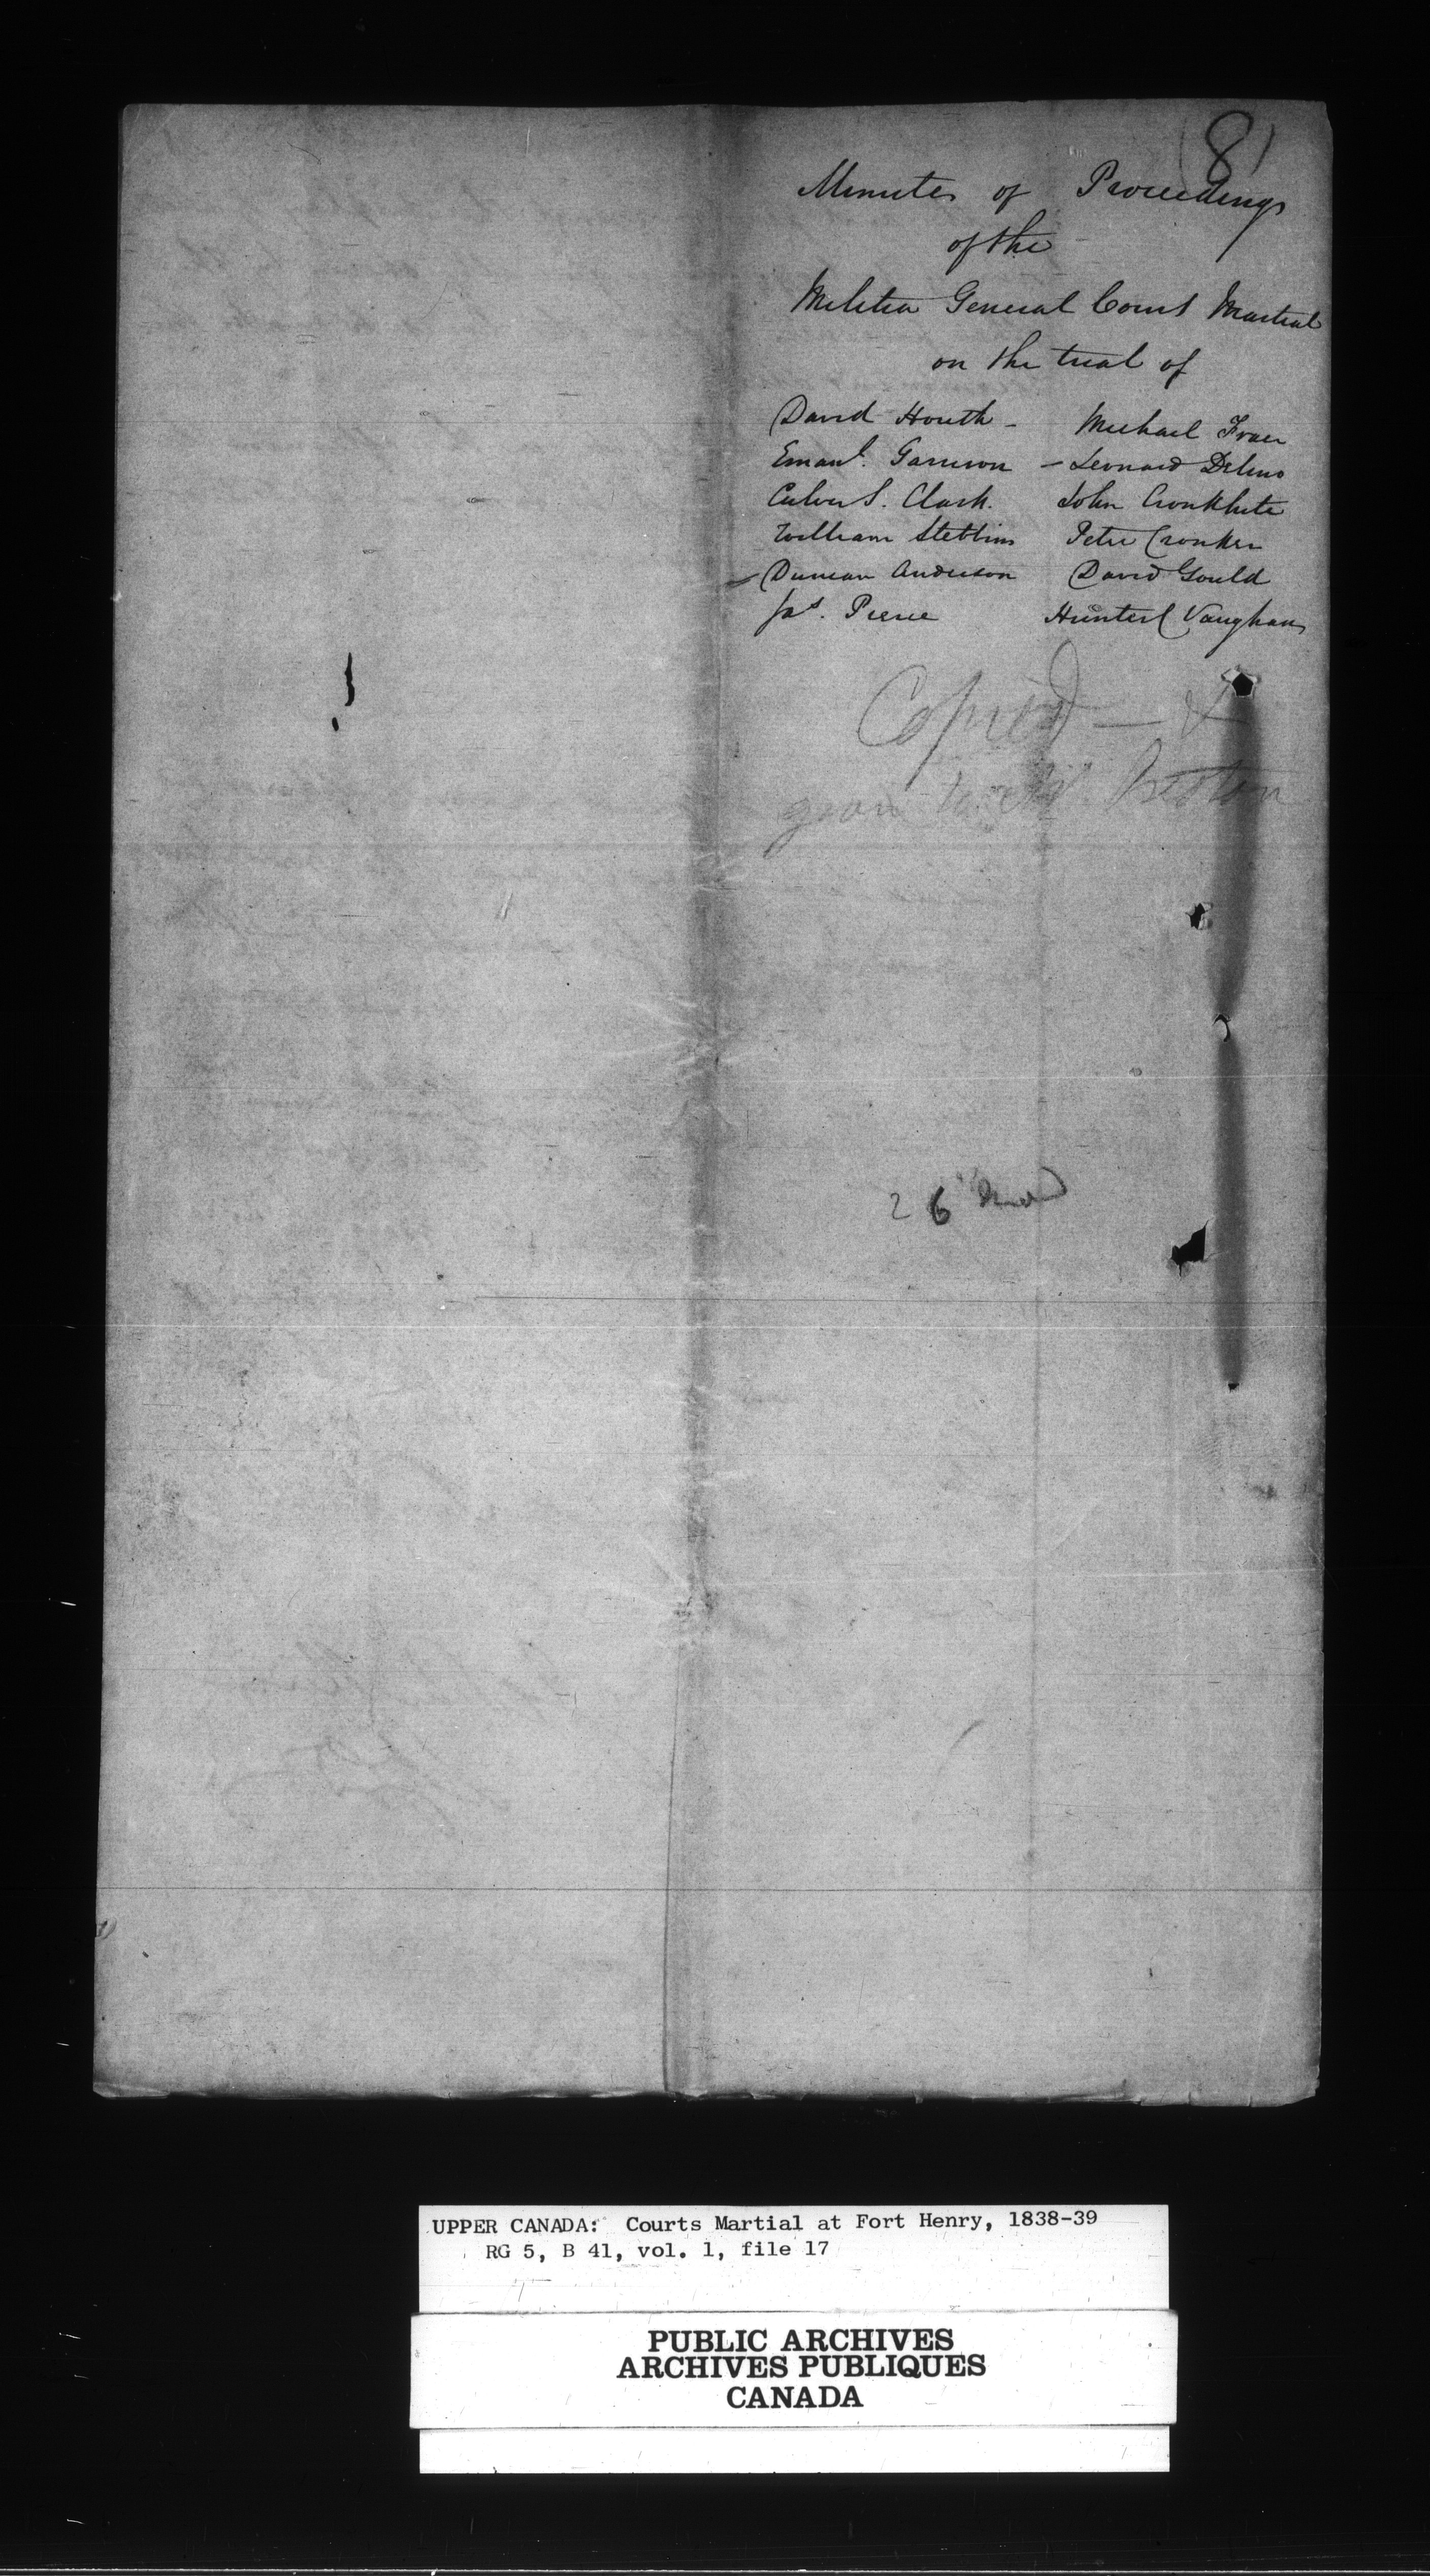 (8)
Minutes of Proceedings
of the
Militia General Court Martial
on the trial of
David Houth - Michael Fraer
Emanl. Garrison - Leonard Delino
Culver S. Clark. John Cronkhite
William Stebbins Peter Cronker
Duncan Anderson David Gould
Jas. Pierce Hunter C Vaughan
Copied - &
given to Mr
26
UPPER CANADA: Courts Martial at Fort Henry, 1838-39
RG 5, B 41, vol. 1, file 17
PUBLIC ARCHIVES
ARCHIVES PUBLIQUES
CANADA